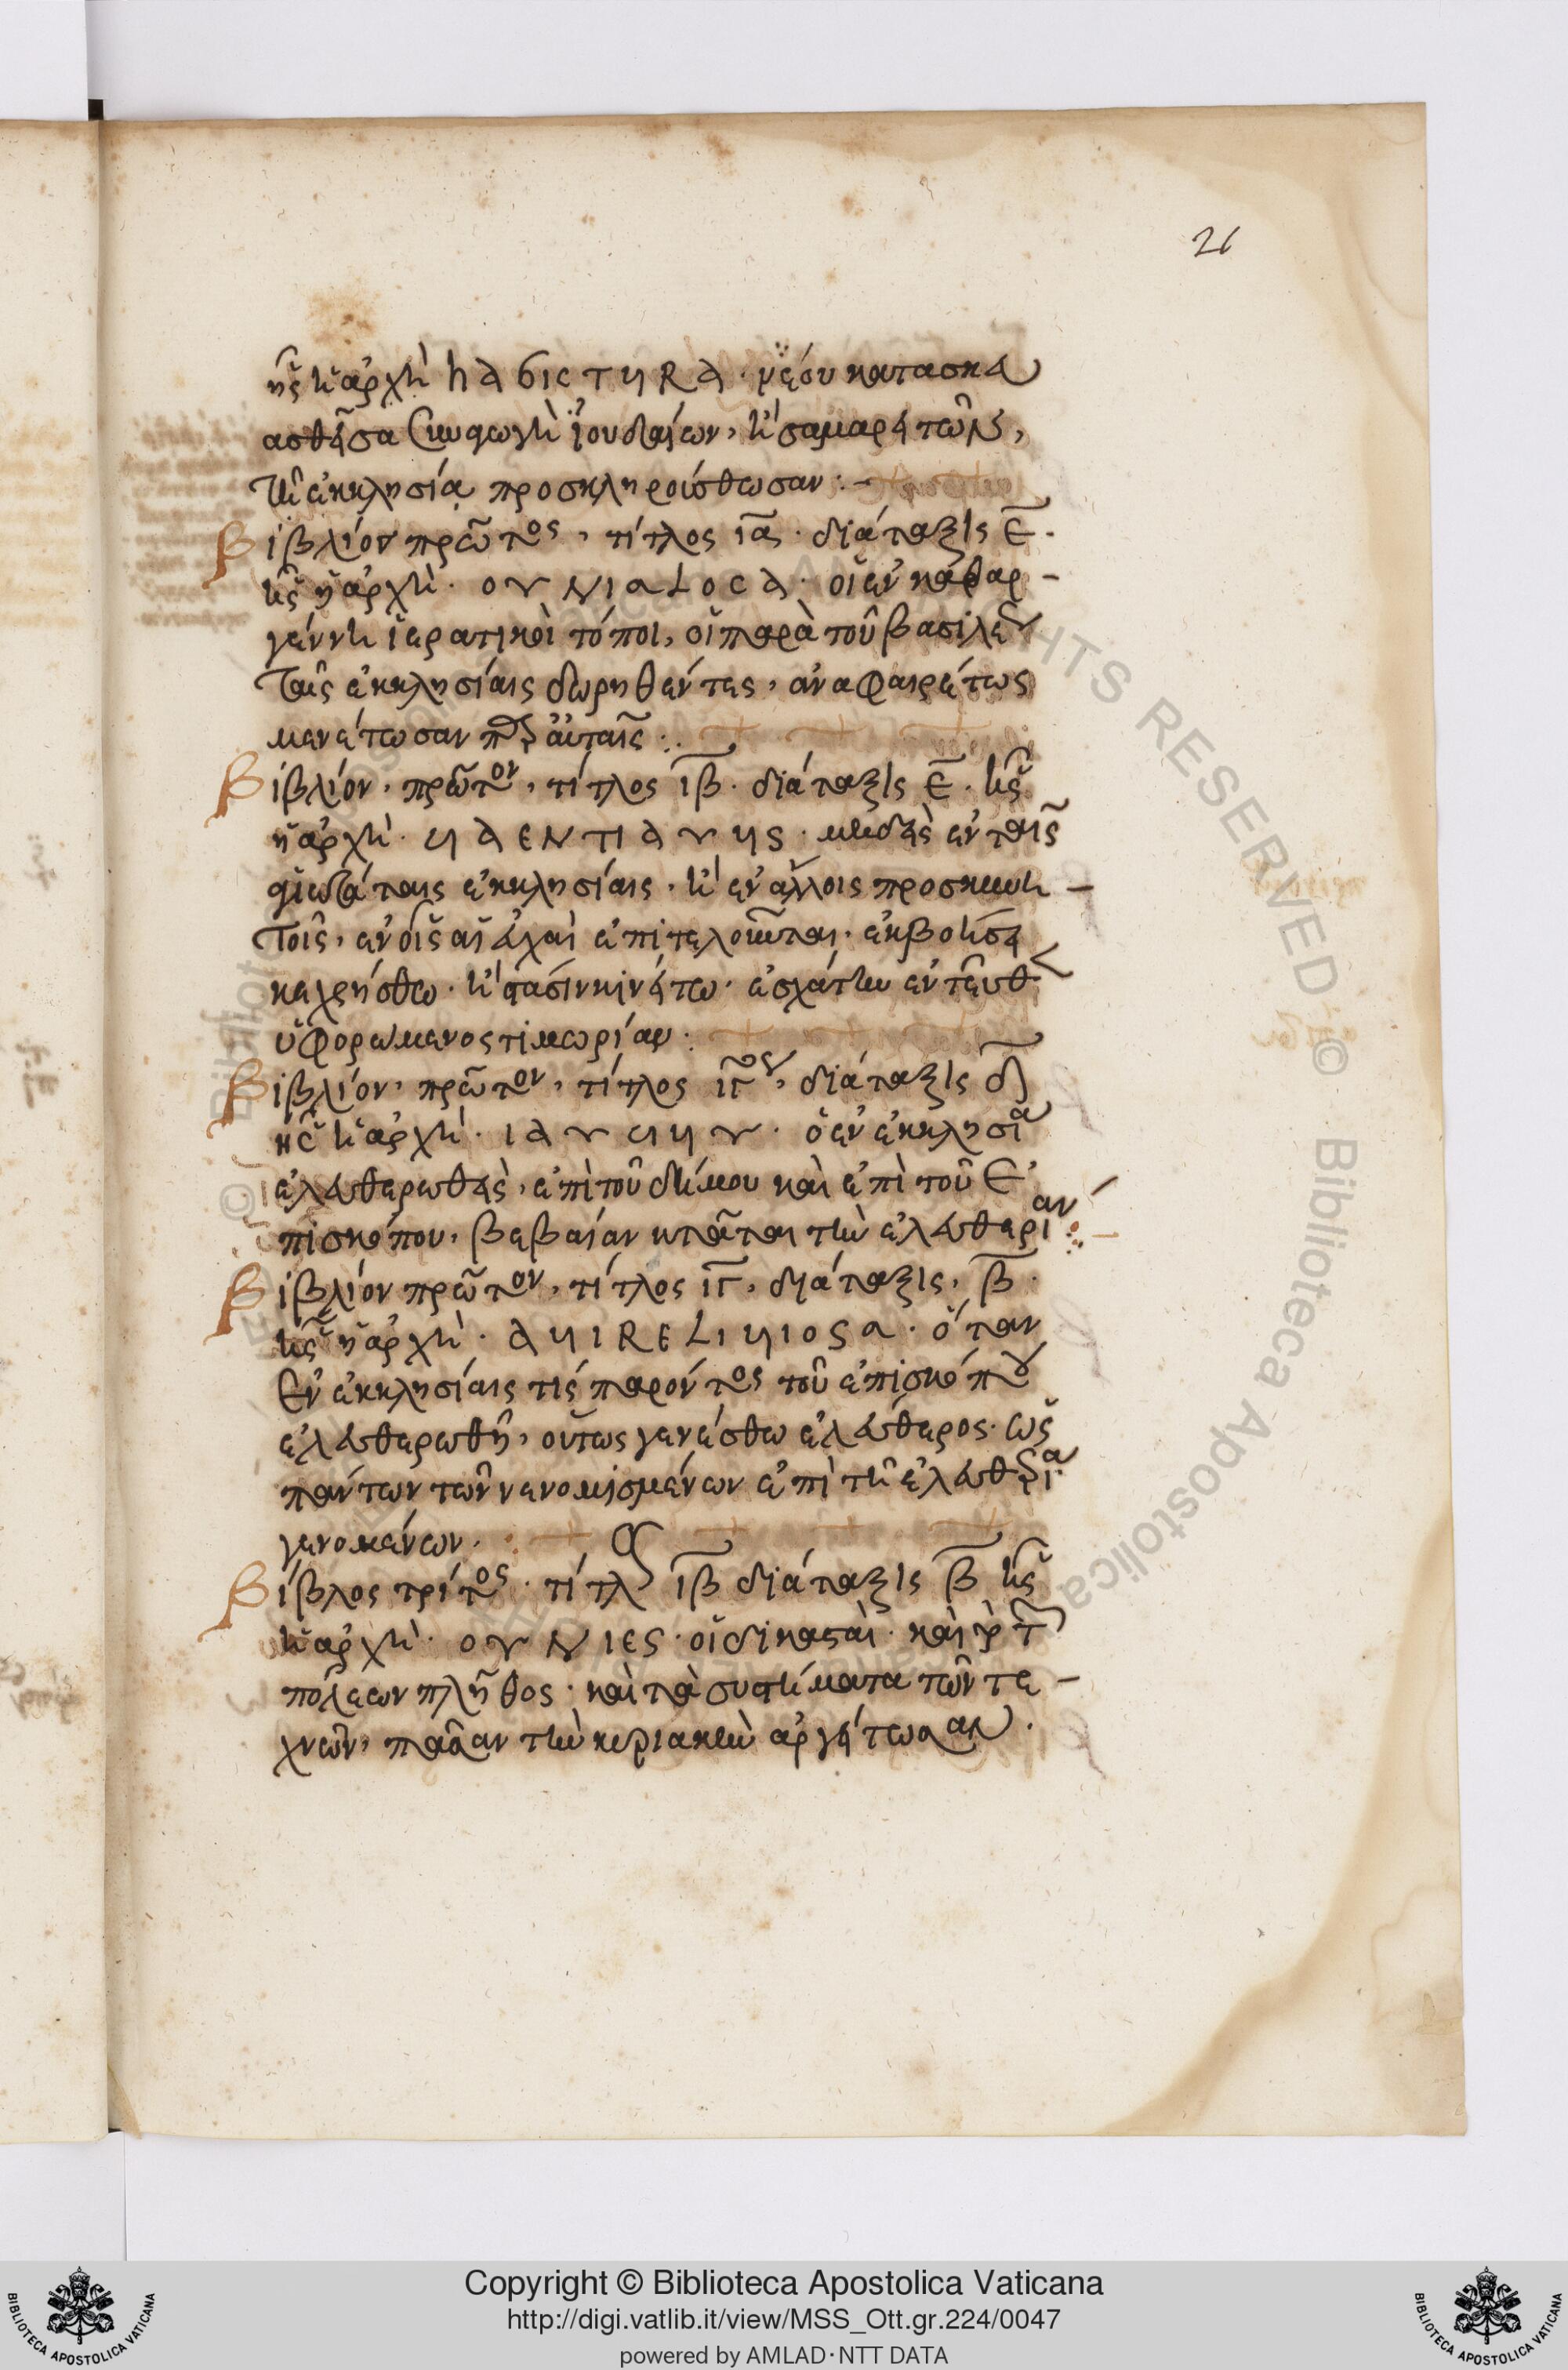 21
ἧς ἡ ἀρχὴ habictura · νέου κατασκευ
ασθεῖσα συναγωγὴ ἰουδαίων, κ̓ σαμαρειτῶν,
τῇ ἐκκλησία προσκληρούσθωσαν : –
Βιβλίον πρῶτος, τίτλος ια. διάταξις ε.
ἧς ἡ ἀρχὴ. ουνιαloca. οἱ ἐν καθαρ –
γέννη ἱερατικοὶ τόποι, οἱ παρὰ τοῦ βασιλέως
ταῖς ἐκκλησίαις δωρηθέντες, ἀναφαιρέτως
μενέτωσαν παρ αὐταῖς :.
Βιβλίον, πρῶτον, τίτλος ιβ. διάταξις ε. ἧς
ἡ ἀρχὴ.
μηδεὶς ἐν ταῖς
ἁγιωτάταις ἐκκλησίαις, κ̓ ἐν ἄλλοις προσκυνη –
τοῖς, ἐν οἷς αἱ εὐχαὶ ἐπιτελοῦνται, ἐκβοήσει
κεχρήσθω. κ̓ στάσιν κινείτω. ἐσχάτην ἐντεῦθεν
ὑφορώμενος τιμωρίαν :
Βιβλίον, πρῶτον, τίτλος ιγ, διάταξις δ
ἧς ἡ ἀρχὴ. ὁ ἐν ἐκκλησία
ἐλευθερωθεὶς, ἐπὶ τοῦ δήμου καὶ ἐπὶ τοῦ ἐ
πισκόπου, βεβαίαν κτᾶται τὴν ἐλευθερίαν
Βιβλίον πρῶτον, τίτλος ιγ, διάταξις, β.
ἧς ἡ ἀρχὴ. ὅταν
ἐν ἐκκλησίαις τίς παρόντος τοῦ ἐπισκόπου
ἐλευθερωθῆ, οὕτως γενέσθω ἐλεύθερος. ὡς
πάντων τῶν νενομισμένων ἐπὶ τῇ ἐλευθερία
γενομένων.
Βίβλος τρίτος. τίτλ ιβ διάταξις β ἧς
ἡ ἀρχὴ. ουνιες. οἱ δικασταὶ. καὶ τὸ τῶν
πόλεων πλῆθος. καὶ τὰ συστήματα τῶν τε –
χνῶν, πᾶσαν τὴν κυριακὴν ἀργείτωσαν.
© Biblioteca Apostolica
RIGHTS RESERVED
Copyright © Biblioteca Apostolica Vaticana
http://digi.vatlib.it/view/MSS_Ott.gr.224/0047
powered by AMLAD·NTT DATA
BIBLIOTECA APOSTOLICA VATICANA
BIBLIOTECA APOSTOLICA VATICANA